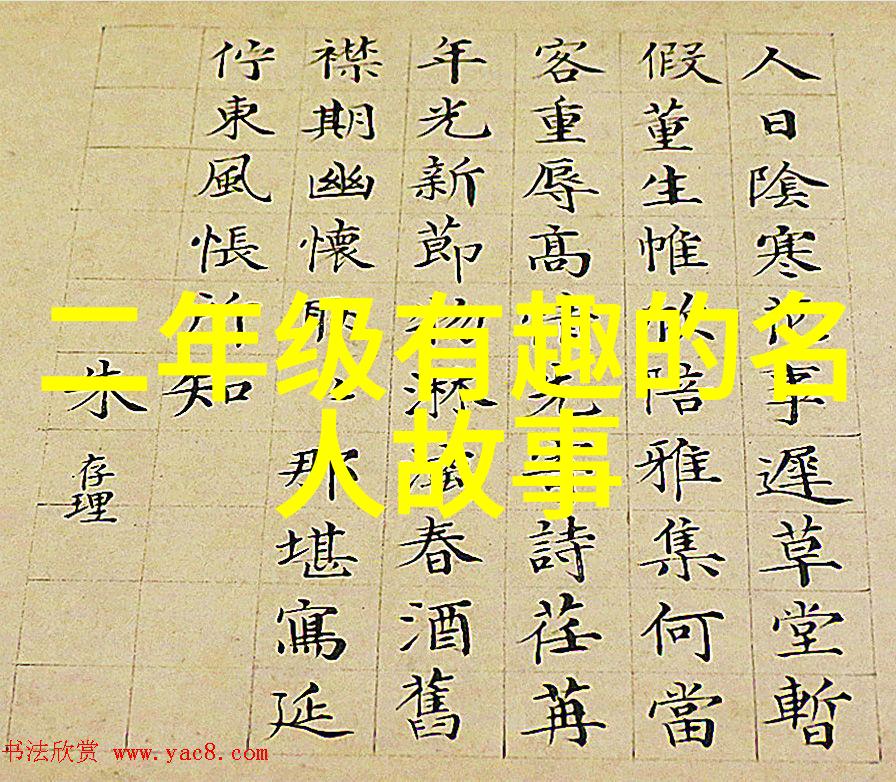 人日陰寒花事遲草堂暫
假董生帷陪雅集何當
客重辱高詩荏苒
年光新節物春酒舊
襟期幽懷那堪寫延
佇東風悵所知
朱存理
二年级有趣的名
人故事
书法欣赏 www.yac8.com